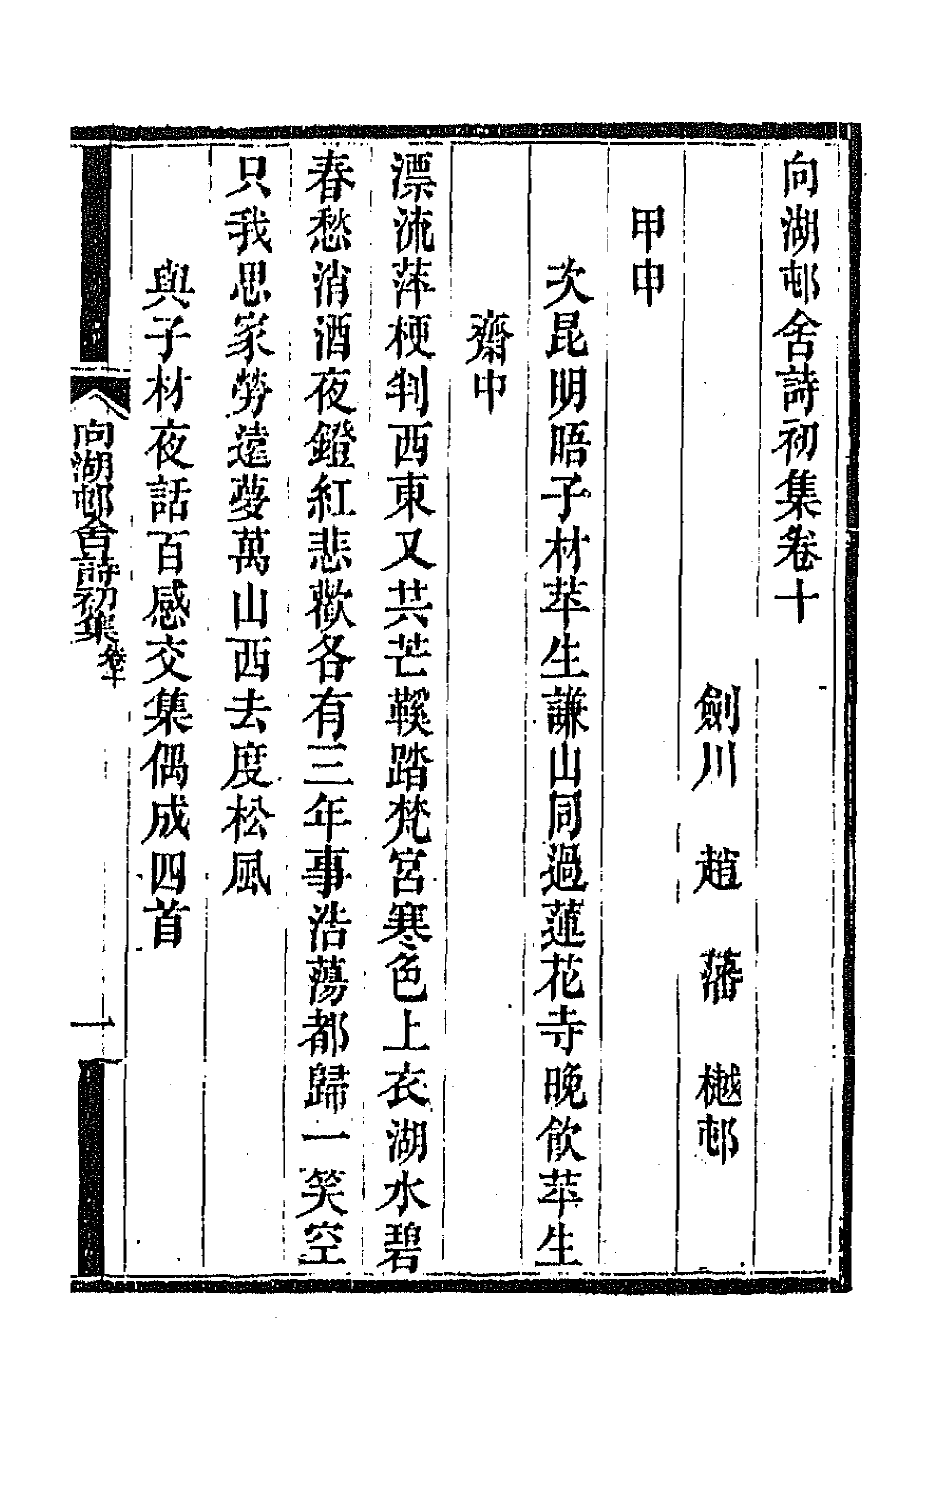 向湖邨舍詩初集卷十
劍川　趙　藩　樾邨
甲申
次昆明晤子材苹生謙山同過蓮花寺晚飲苹生
齋中
漂流萍梗判西東又共芒鞵踏梵宮寒色上衣湖水碧
春愁消酒夜鐙紅悲歡各有三年事浩蕩都歸一笑空
只我思家勞遠夢萬山西去度松風
與子材夜話百感交集偶成四首
向湖邨舍詩初集卷十
一